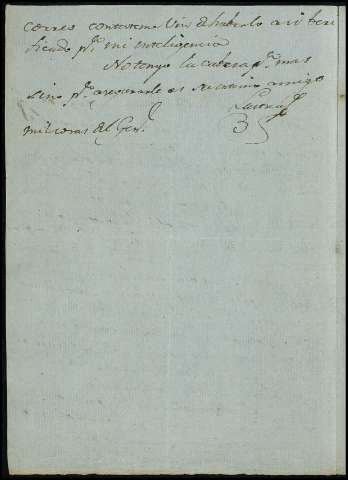 correo contesteme Vm. de haberlo asi beri
ficado pa. mi inteligencia
No tengo la cabeza pa. mas
sino pa. asegurarle es su intimo amigo
mil cosas al Genl.